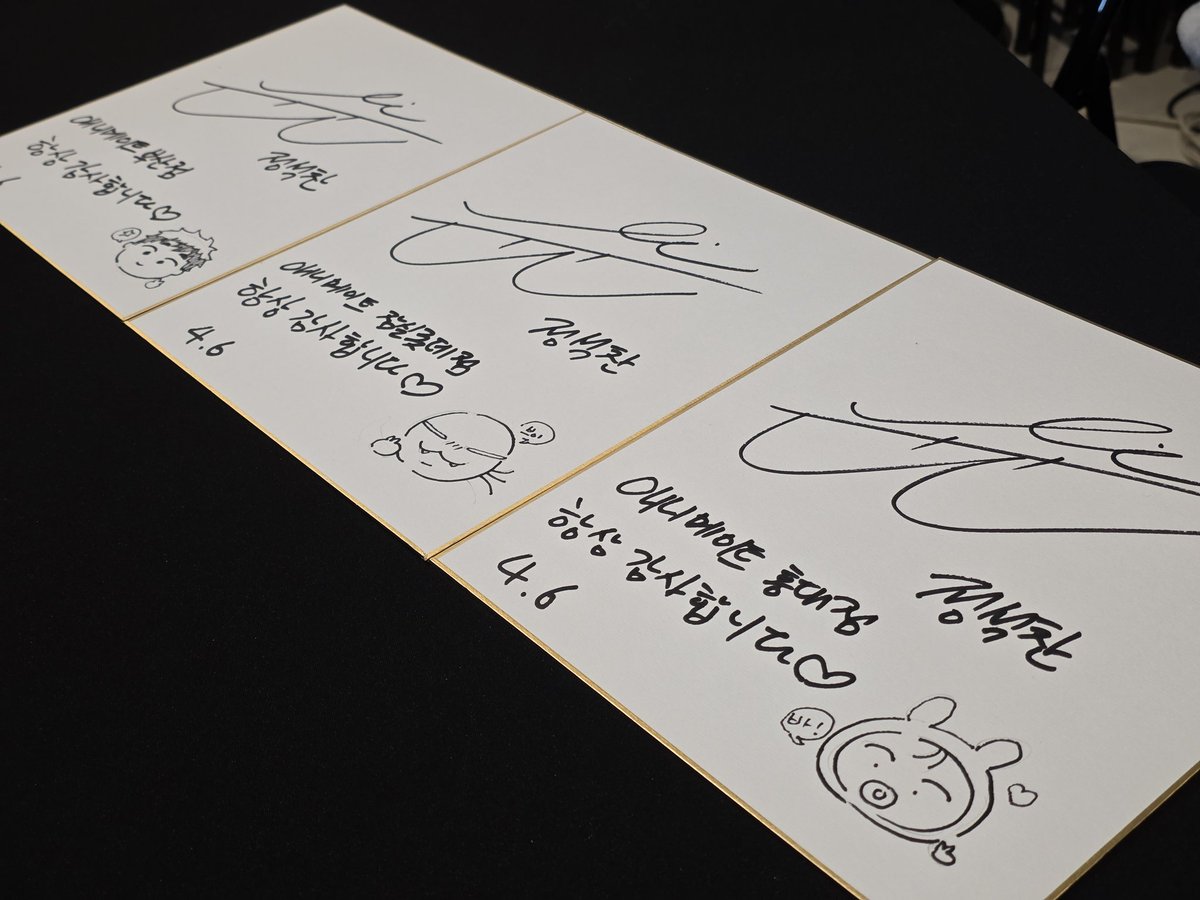 정석찬
애니메이트 부산점
항상 감사합니다♡
정석찬
애니메이트 잠실롯데점
항상 감사합니다♡
4.6
정석찬
애니메이트 홍대점
항상 감사합니다♡
4.6
빠!